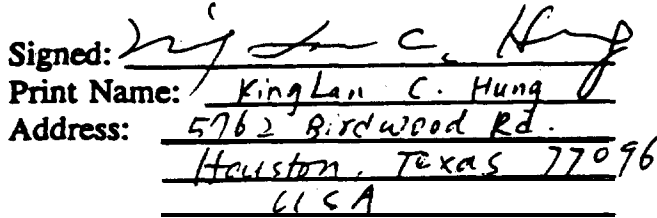 Signed: C. Hung
Print Name: King Lan C. Hung
Address: 5762 Birdwood Rd.
Houston, Texas 77096
USA